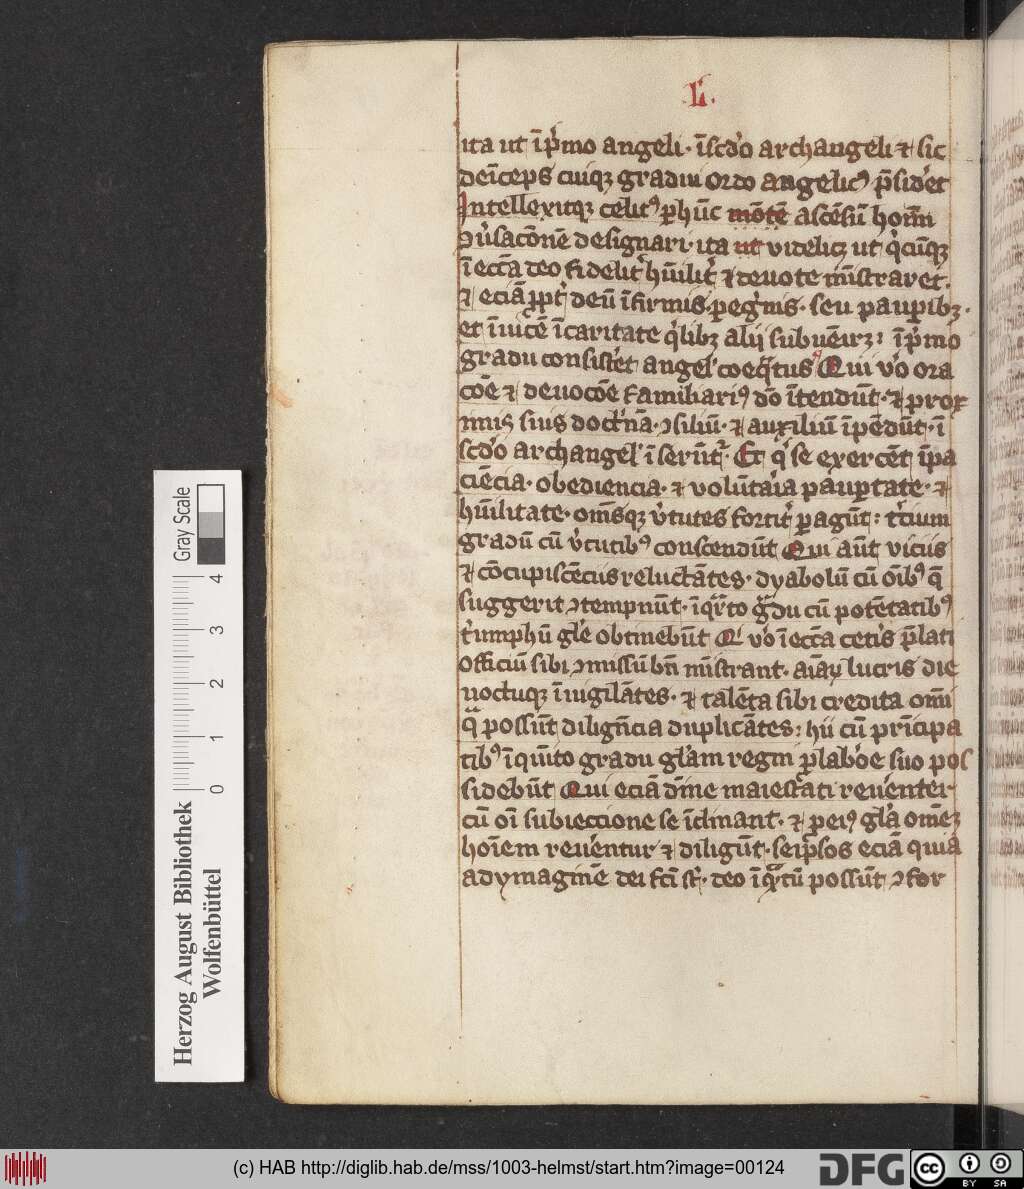 L.
ita ut īp̄mo angeli · īscd̄o archangeli ⁊ sic
deīceps cuiqꝫ gradui ordo angelicꝰ p̄sidet
Intellexitqꝫ celitꝰ ꝑ hūc mōtē ascēsū hom̄
ꝯv̓sacōnē designari · ita ut videlicꝫ ut q̇cūqꝫ
ī ecc̄a deo fidelit̓ hūilit̓ ⁊ deuote mīstraret ·
⁊ eciā ꝓpt̓ deū īfirmis · ꝑegⁱnis · seu pauꝑibꝫ ·
et īuicē ī caritate q̇libꝫ alii subuēirꝫ : īp̄mo
gradu consist̓et angel̓ coeq̄tus Qui v̓o ora
cōe ⁊ deuocōe familiariꝰ dō ītendūt · ⁊ prox
imis suis doct̓nā · ꝯsiliū · ⁊ auxiliū īpēdūt · ī
scd̄o archangel̓ īserūt᷑ · Et qⁱ se exercēt ī pa
ciēcia · obediencia · ⁊ volūtaīa pauꝑtate · ⁊
hūilitate · om̄sqꝫ v̓tutes fortit̓ ꝑagūt : t̓cium
gradū cū v̓tutibꝰ conscendūt Qui aūt viciis
⁊ cōcupiscēciis reluctātes · dyabolū cū oībꝰ q̄
suggerit ꝯtempnūt · ī qᷓrto gᷓdu cū potētatibꝰ
tⁱumphū gl̄e obtinebūt Qⁱ v̓o ī ecc̄a cet̓is p̄lati
officiū sibi ꝯmissū bn̄ mīstrant · aīaꝝ lucris die
noctuqꝫ īuigilātes · ⁊ talēta sibi credita om̄i
qᷓ possūt dilign̄cia duplicātes : hii cū prīcipa
tibꝰ ī quīto gradu gl̄am regni ꝓ labōe suo pos
sidebūt Qui eciā dīne maiestati reuēnter
cū oī subieccione se īclinant · ⁊ ꝑ eiꝰ gl̄a omēꝫ
hoīem reuēntur ⁊ diligūt · seip̄sos eciā quia
ad ymaginē dei fc̄i st̄ · deo ī qᷓtū possūt ꝯfor
Herzog August Bibliothek
Wolfenbüttel
0 1 2 3 4
Gray Scale
(c) HAB http://diglib.hab.de/mss/1003-helmst/start.htm?image=00124
DFG
cc BY SA